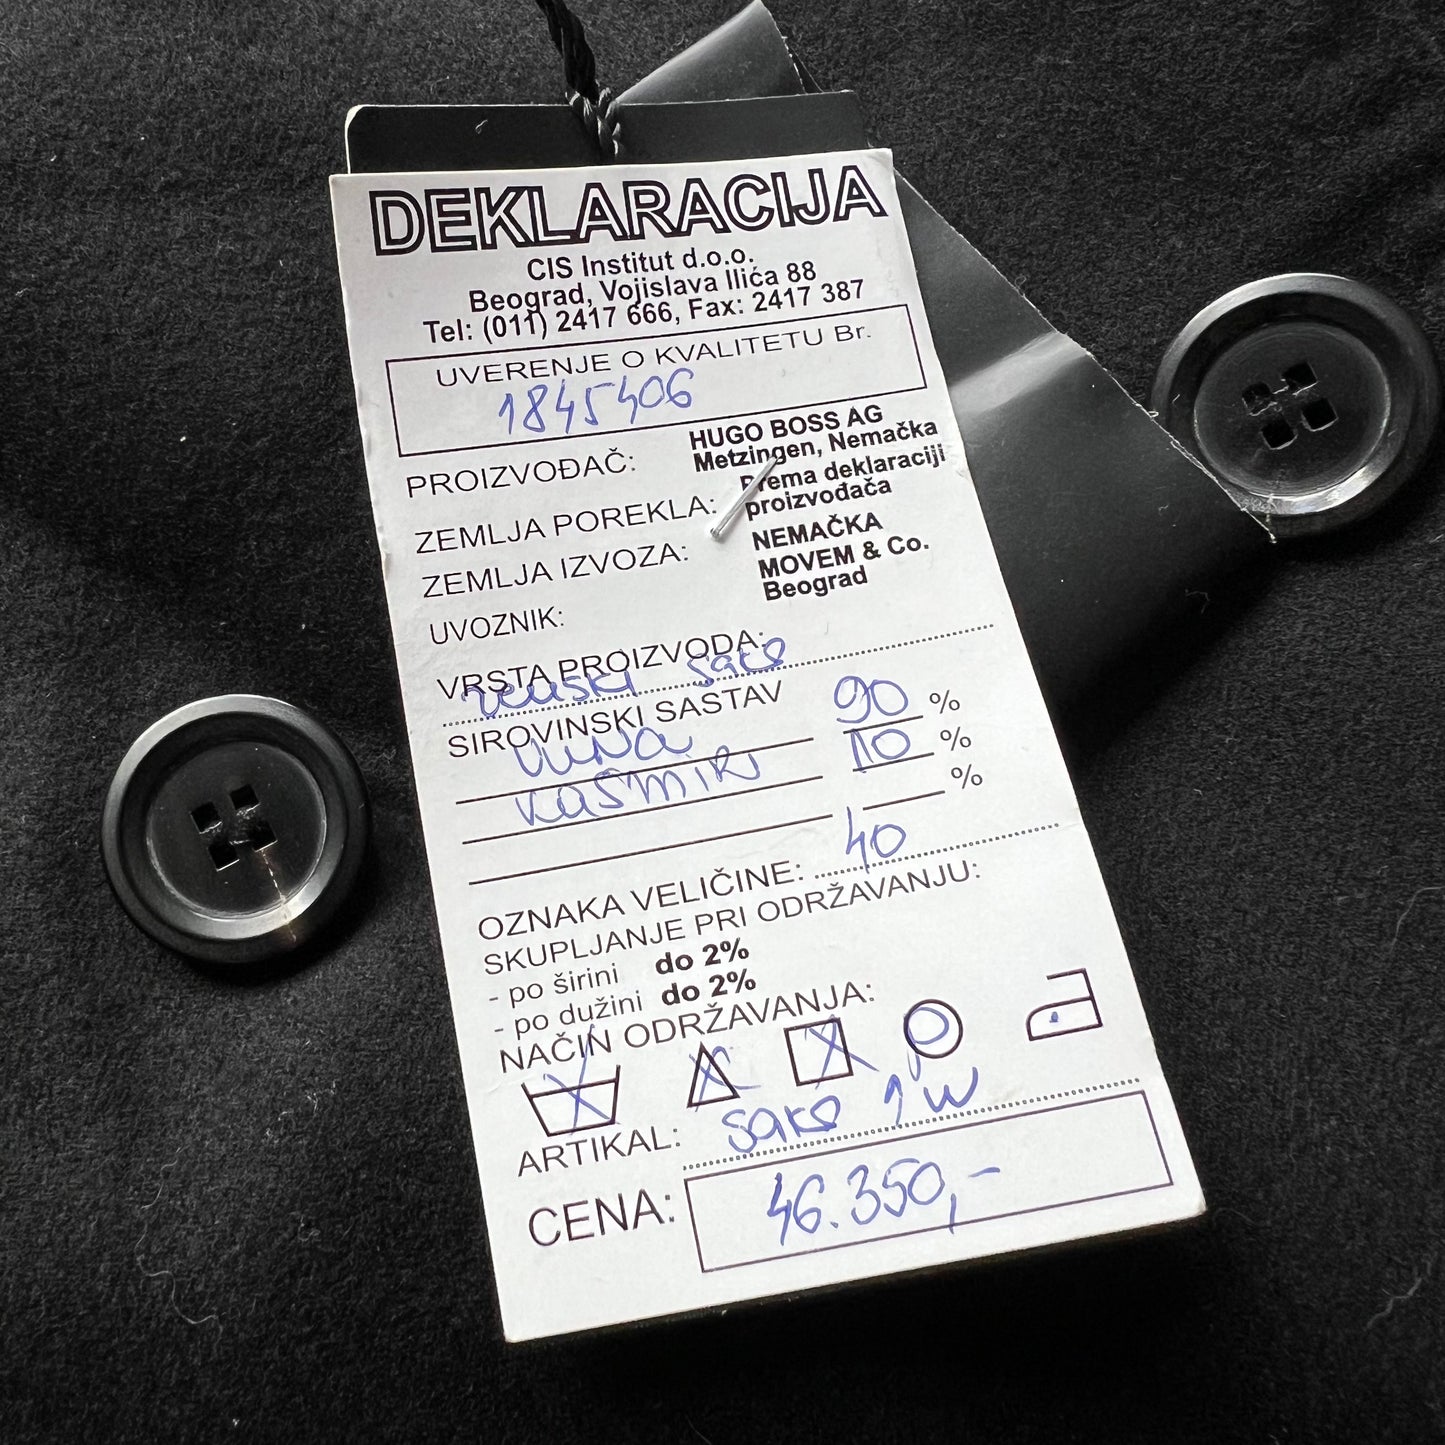 DEKLARACIJA
CIS Institut d.o.o.
Beograd, Vojislava Ilića 88
Tel: (011) 2417 666, Fax: 2417 387
UVERENJE O KVALITETU Br.
1845406
PROIZVOĐAČ: HUGO BOSS AG
Metzingen, Nemačka
ZEMLJA POREKLA: Prema deklaraciji
proizvođača
ZEMLJA IZVOZA: NEMAČKA
UVOZNIK: MOVEM & Co.
Beograd
VRSTA PROIZVODA:
ženski sako
SIROVINSKI SASTAV
vuna 90 %
kašmir 10 %
%
OZNAKA VELIČINE: 40
SKUPLJANJE PRI ODRŽAVANJU:
- po širini do 2%
- po dužini do 2%
NAČIN ODRŽAVANJA:
P
ARTIKAL: sako 1 W
CENA: 46.350,-